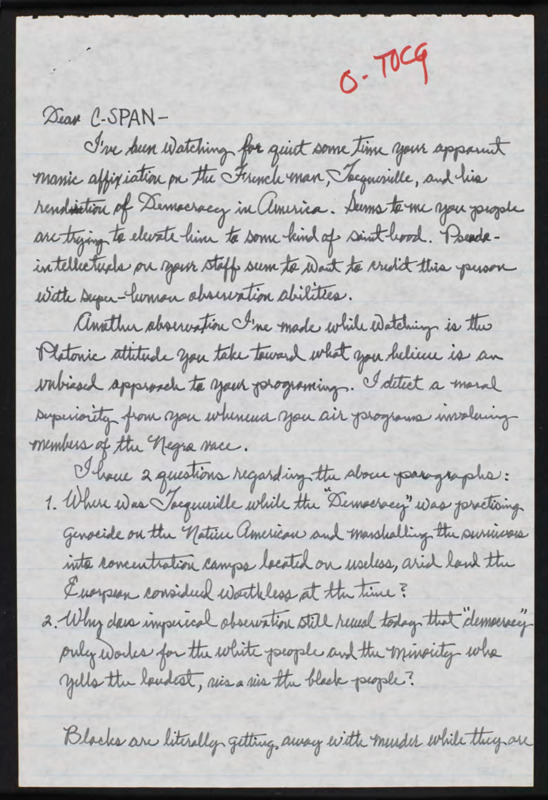 O-TOCQ
Dear C-SPAN-
I've been watching for quiet some time your apparent
manic affixiation on the French man, Tocqueville, and his
rendition of Democracy in America. Seems to me you people
are trying to elevate him to some kind of saint hood. Pseudo-
intellectuals on your staff seem to want to credit this person
with super-human observation abilities.
Another observation I've made while watching is the
Platonic attitude you take toward what you believe is an
unbiased approach to your programing. I detect a moral
superiority from you whenever you air programs involving
members of the Negro race.
I have 2 questions regarding the above paragraphs:
1. Where was Tocqueville while the "Democracy" was practising
genocide on the Native American and marshalling the survivors
into concentration camps located on useless, arid land the
European considered worthless at the time?
2. Why does imperical observation still reveal today that "democracy"
only works for the white people and the minority who
yells the loudest, vis a vis the black people?
Blacks are literally getting away with murder while they are